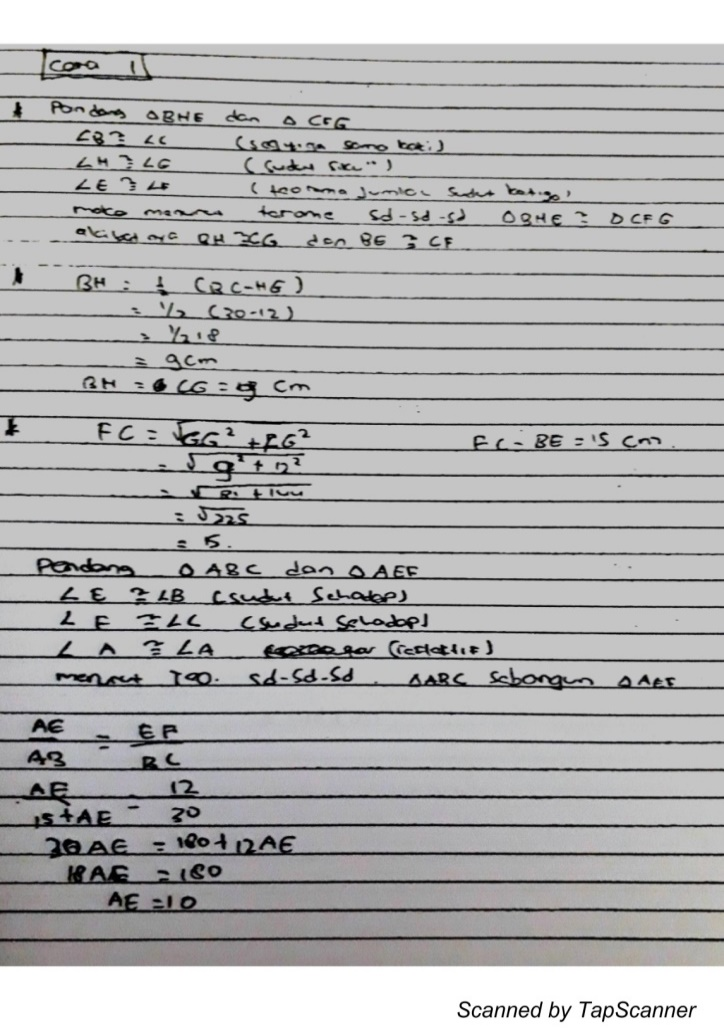 Cara 1
* Pandang △BHE dan △ CFG
∠B ≅ ∠C (segitiga sama kaki)
∠H ≅ ∠G (sudut siku")
∠E ≅ ∠F (teorema jumlah sudut ketiga)
maka menurut teroma sd-sd-sd △BHE ≅ △CFG
akibatnya BH ≅ CG dan BE ≅ CF
* BH = 1/2 (BC-HG)
= 1/2 (30-12)
= 1/2 18
= 9cm
BH = CG = 9 cm
* FC = √GG² + FG² FC = BE = 15 cm.
= √9² + 12²
= √81 + 144
= √225
= 15.
Pandang △ABC dan △AEF
∠E ≅ ∠B (sudut Sehadap)
∠F ≅ ∠C (sudut Sehadap)
∠A ≅ ∠A (reflektif)
menurut Teo. sd-sd-sd. △ABC Sebangun △AEF
AE/AB = EF/BC
AE/15+AE = 12/30
30AE = 180 + 12AE
18AE = 180
AE = 10
Scanned by TapScanner